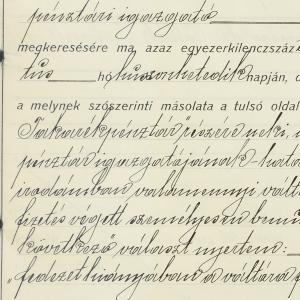 pénztári igazgató
megkeresésére ma, azaz egyezerkilenczszáz
tus hó huszonhetedik napján, d
a melynek szószerinti másolata a tulsó oldal
Takarékpénztár" részére neki,
pénztár igazgatójának - hatá
irodámban valamennyi vált
fizetés végett személyesen bemu
következő választ nyertem:
"fedezet hiányában a váltóra